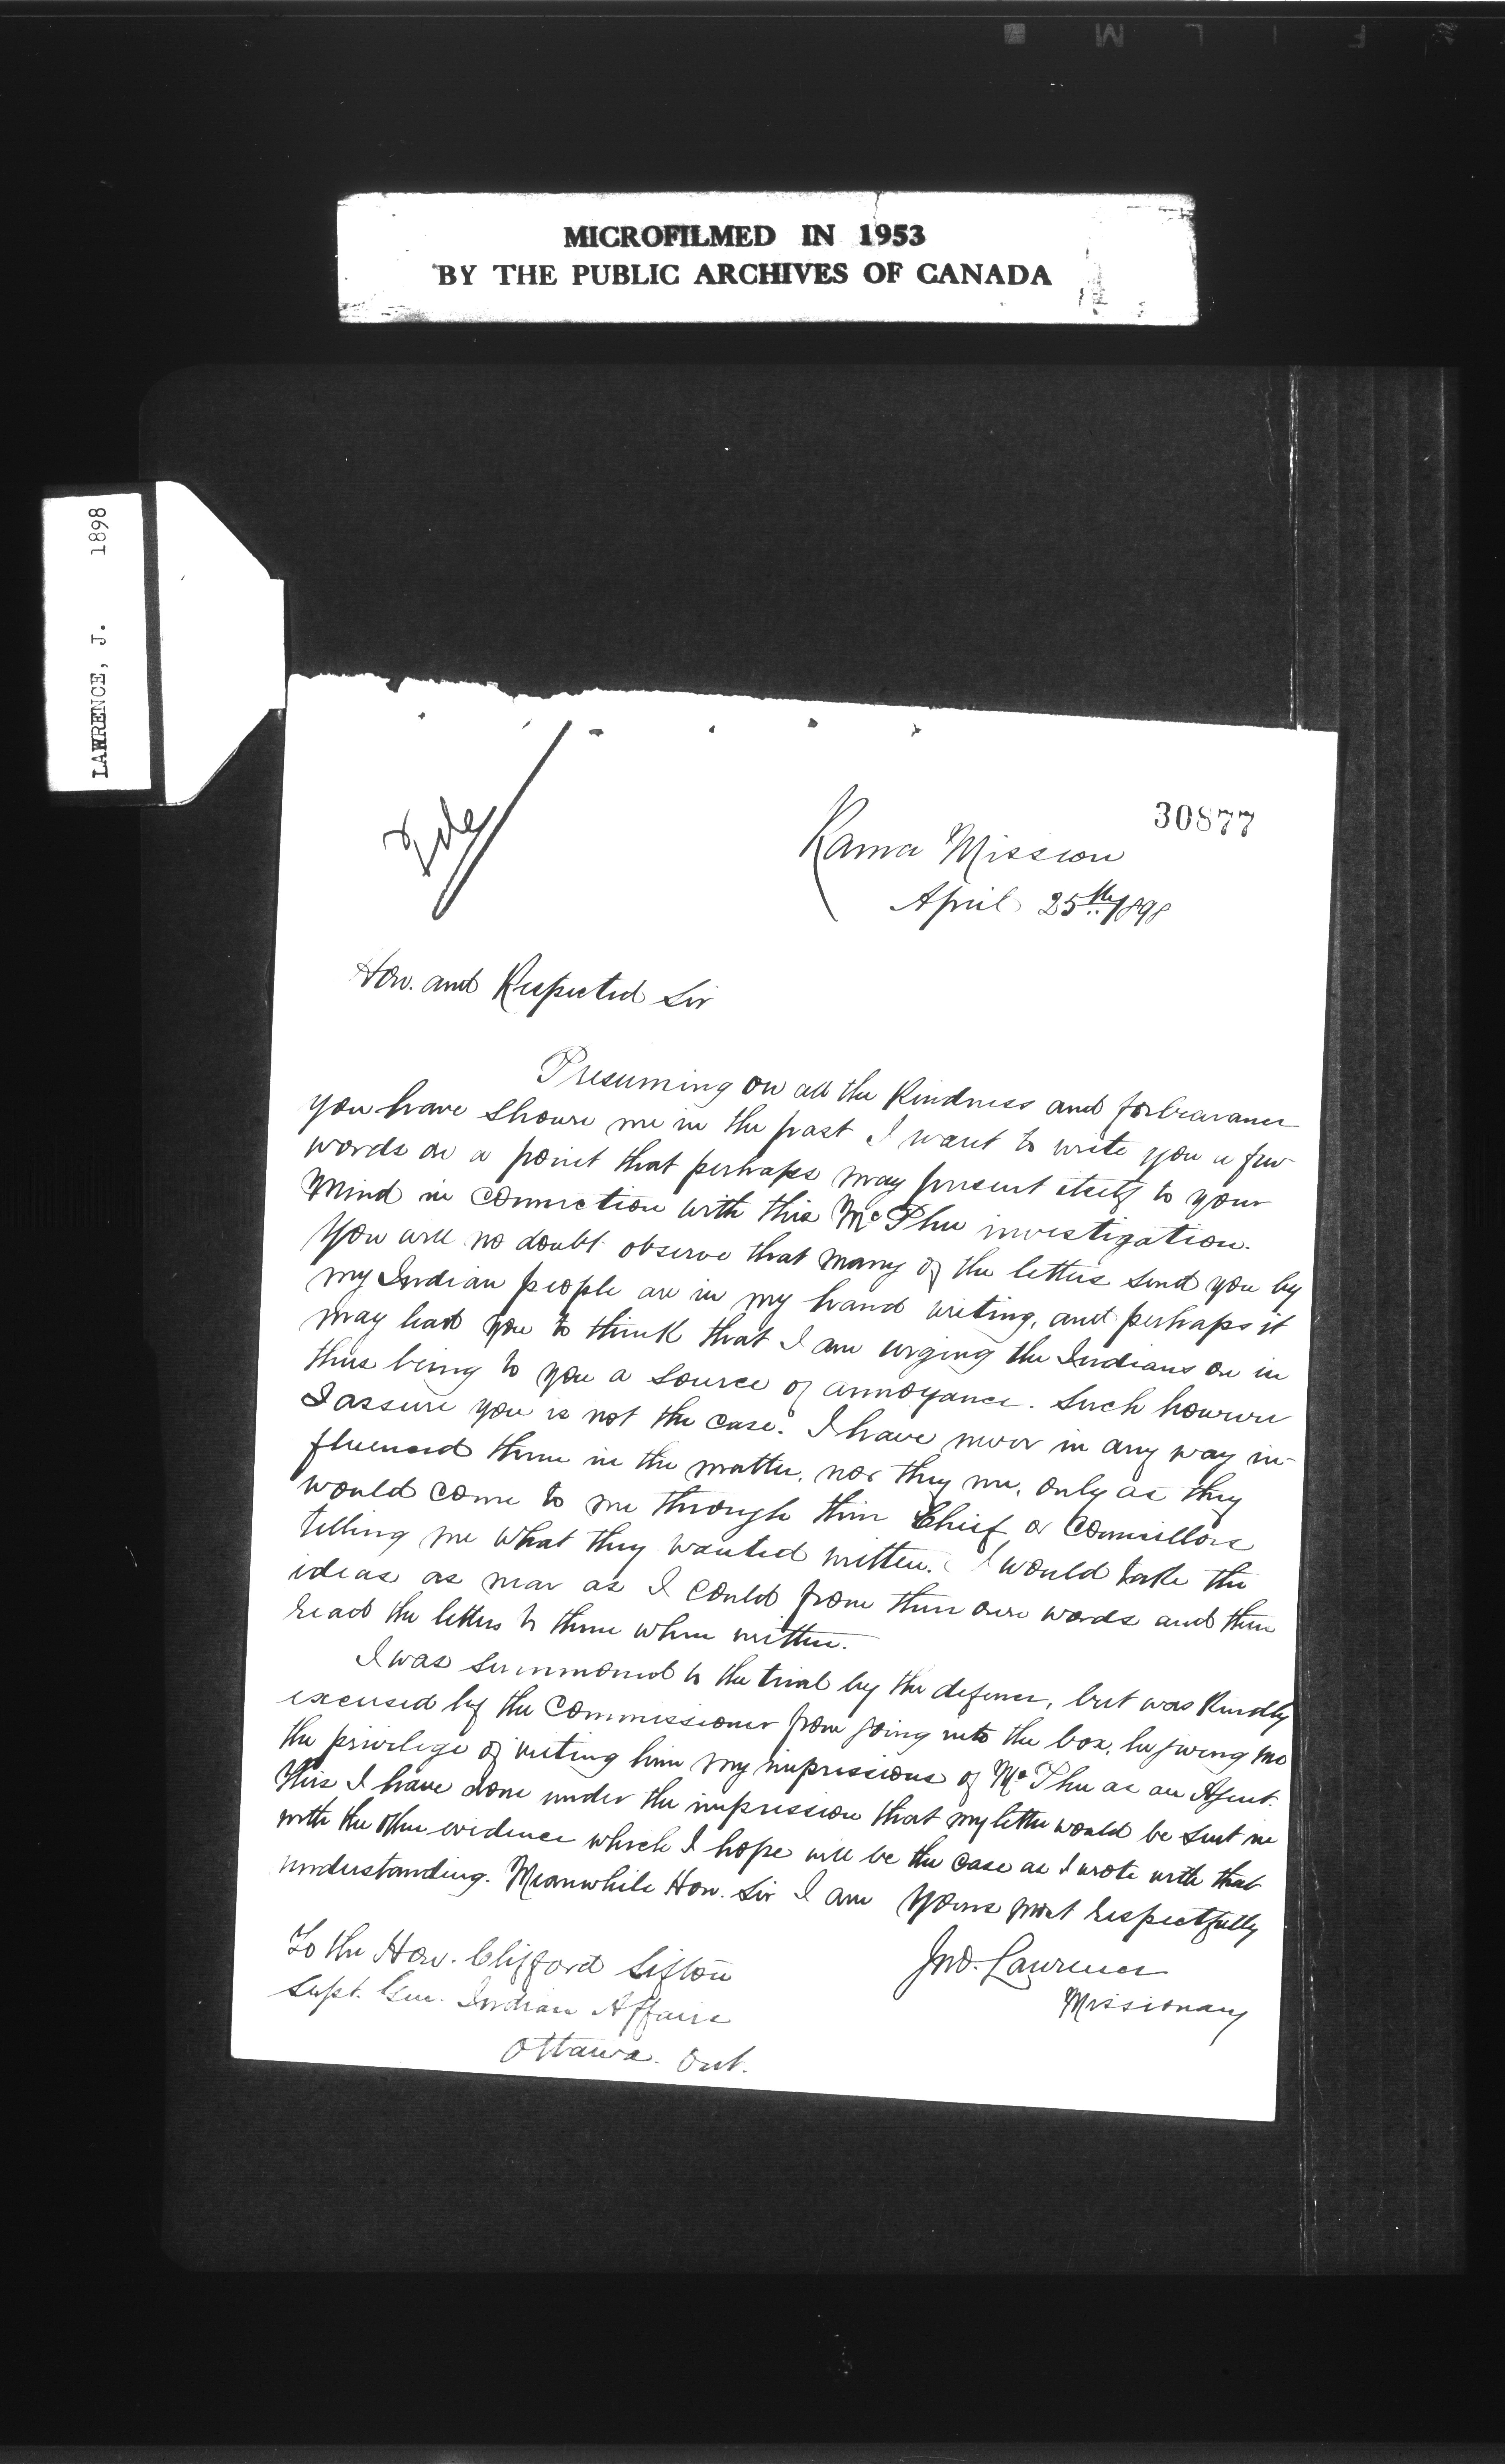 MICROFILMED IN 1953
BY THE PUBLIC ARCHIVES OF CANADA
LAWRENCE, J. 1898
File
30877
Rama Mission
April 25th 1898
Hon. and Respected Sir
Presuming on all the Kindness and forbearance
you have shown me in the past I want to write you a few
words on a point that perhaps may present itself to your
mind in connection with this McPhee investigation.
You will no doubt observe that many of the letters send you by
my Indian people are in my hand writing, and perhaps it
may lead you to think that I am urging the Indians on in
thus being to you a source of annoyance. Such however
I assure you is not the case. I have never in any way in-
fluenced them in the matter, nor they me, only as they
would come to me through their Chief or Councillors
telling me what they wanted written. I would take the
ideas as near as I could from their own words and then
read the letters to them when written.
I was summoned to the trial by the defence, but was Kindly
excused by the Commissioner from going into the box, he giving me
the privilege of writing him my impressions of McPhee as an Agent.
This I have done under the impression that my letter would be sent in
with the other evidence which I hope will be the case as I wrote with that
understanding. Meanwhile Hon. Sir I am Yours most respectfully
Jno. Lawrence
Missionary
To the Hon. Clifford Sifton
Supt. Gen. Indian Affairs
Ottawa. Ont.